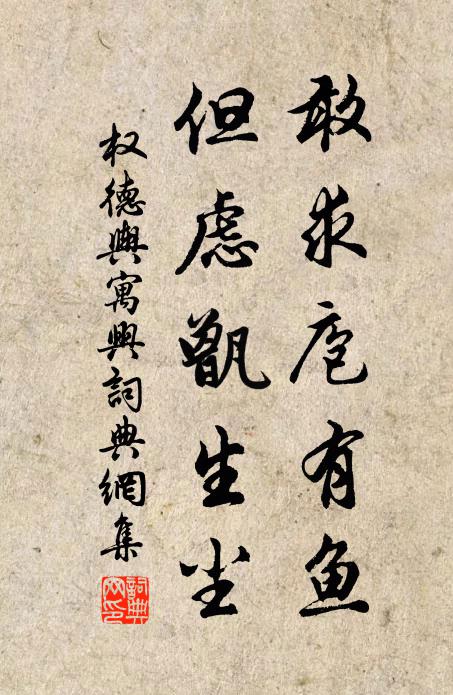 敢求庖有鱼
但虑甑生尘
权德舆寓兴词典網集
詞典网印